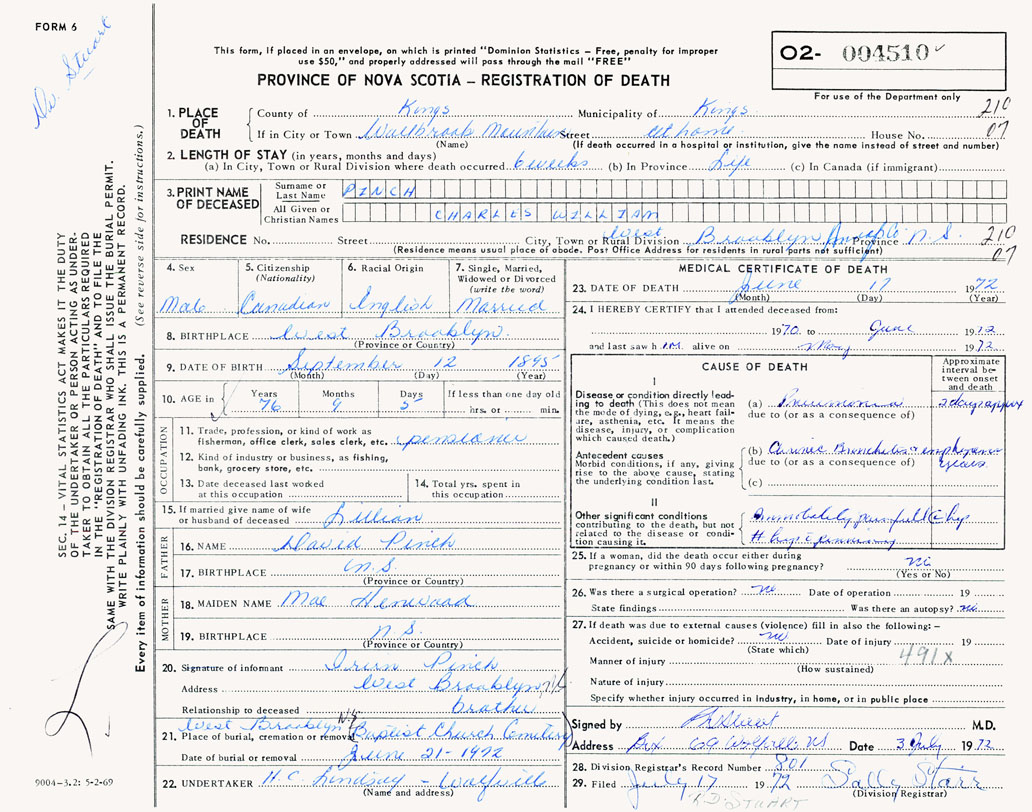 FORM 6
Dr. Stuart
This form, if placed in an envelope, on which is printed "Dominion Statistics – Free, penalty for improper
use $50," and properly addressed will pass through the mail "FREE"
PROVINCE OF NOVA SCOTIA – REGISTRATION OF DEATH
O2- 004510
For use of the Department only
SEC. 14 – VITAL STATISTICS ACT MAKES IT THE DUTY
OF THE UNDERTAKER OR PERSON ACTING AS UNDER-
TAKER TO OBTAIN ALL THE PARTICULARS REQUIRED
IN THE "REGISTRATION OF DEATH" AND TO FILE THE
SAME WITH THE DIVISION REGISTRAR WHO SHALL ISSUE THE BURIAL PERMIT.
WRITE PLAINLY WITH UNFADING INK. THIS IS A PERMANENT RECORD.
Every item of information should be carefully supplied. (See reverse side for instructions.)
1. PLACE OF DEATH County of Kings Municipality of Kings 210
If in City or Town Wallbrook Mountain Street at home House No. 07
(Name) (If death occurred in a hospital or institution, give the name instead of street and number)
2. LENGTH OF STAY (in years, months and days)
(a) In City, Town or Rural Division where death occurred 6 weeks (b) In Province Life (c) In Canada (if immigrant)
3. PRINT NAME OF DECEASED Surname or Last Name PINCH
All Given or Christian Names CHARLES WILLIAM
RESIDENCE No. Street City, Town or Rural Division West Brooklyn Province N.S. 210
(Residence means usual place of abode. Post Office Address for residents in rural parts not sufficient) 07
4. Sex 5. Citizenship (Nationality) 6. Racial Origin 7. Single, Married, Widowed or Divorced (write the word)
Male Canadian English Married
8. BIRTHPLACE West Brooklyn.
(Province or Country)
9. DATE OF BIRTH September 12 1895
(Month) (Day) (Year)
10. AGE in Years Months Days If less than one day old
76 9 5 hrs. or min.
OCCUPATION
11. Trade, profession, or kind of work as
fisherman, office clerk, sales clerk, etc. pensioner
12. Kind of industry or business, as fishing,
bank, grocery store, etc.
13. Date deceased last worked at this occupation
14. Total yrs. spent in this occupation
15. If married give name of wife
or husband of deceased Lillian
FATHER
16. NAME David Pinch
17. BIRTHPLACE N.S.
(Province or Country)
MOTHER
18. MAIDEN NAME Mae Henwood
19. BIRTHPLACE N.S.
(Province or Country)
20. Signature of informant Pinch
Address West Brooklyn, N.S.
Relationship to deceased brother
West Brooklyn N.S.
21. Place of burial, cremation or removal Baptist Church Cemetery
Date of burial or removal June 21-1972
22. UNDERTAKER H.C. Lindsay – Wolfville
(Name and address)
MEDICAL CERTIFICATE OF DEATH
23. DATE OF DEATH June 17 1972
(Month) (Day) (Year)
24. I HEREBY CERTIFY that I attended deceased from:
1970 to June 1972
and last saw him alive on May 1972
CAUSE OF DEATH
Approximate interval between onset and death
I
Disease or condition directly lead-
ing to death (This does not mean
the mode of dying, e.g., heart fail-
ure, asthenia, etc. It means the
disease, injury, or complication
which caused death.)
(a) Pneumonia 2 days approx
due to (or as a consequence of)
Antecedent causes
Morbid conditions, if any, giving
rise to the above cause, stating
the underlying condition last.
(b) Chronic Bronchitis & emphysema years
due to (or as a consequence of)
(c)
II
Other significant conditions
contributing to the death, but not
related to the disease or condi-
tion causing it.
Immobility painful hip
25. If a woman, did the death occur either during
pregnancy or within 90 days following pregnancy? No
(Yes or No)
26. Was there a surgical operation? No Date of operation 19
State findings Was there an autopsy? No
27. If death was due to external causes (violence) fill in also the following: –
Accident, suicide or homicide? no Date of injury 19
(State which)
Manner of injury 491X
(How sustained)
Nature of injury
Specify whether injury occurred in industry, in home, or in public place
Signed by Stuart M.D.
Address Box 69 Wolfville NS Date 3 July 1972
28. Division Registrar's Record Number 801
29. Filed July 17 1972 Sally Starr
(Division Registrar)
K.D. STUART
9004-3.2: 5-2-69